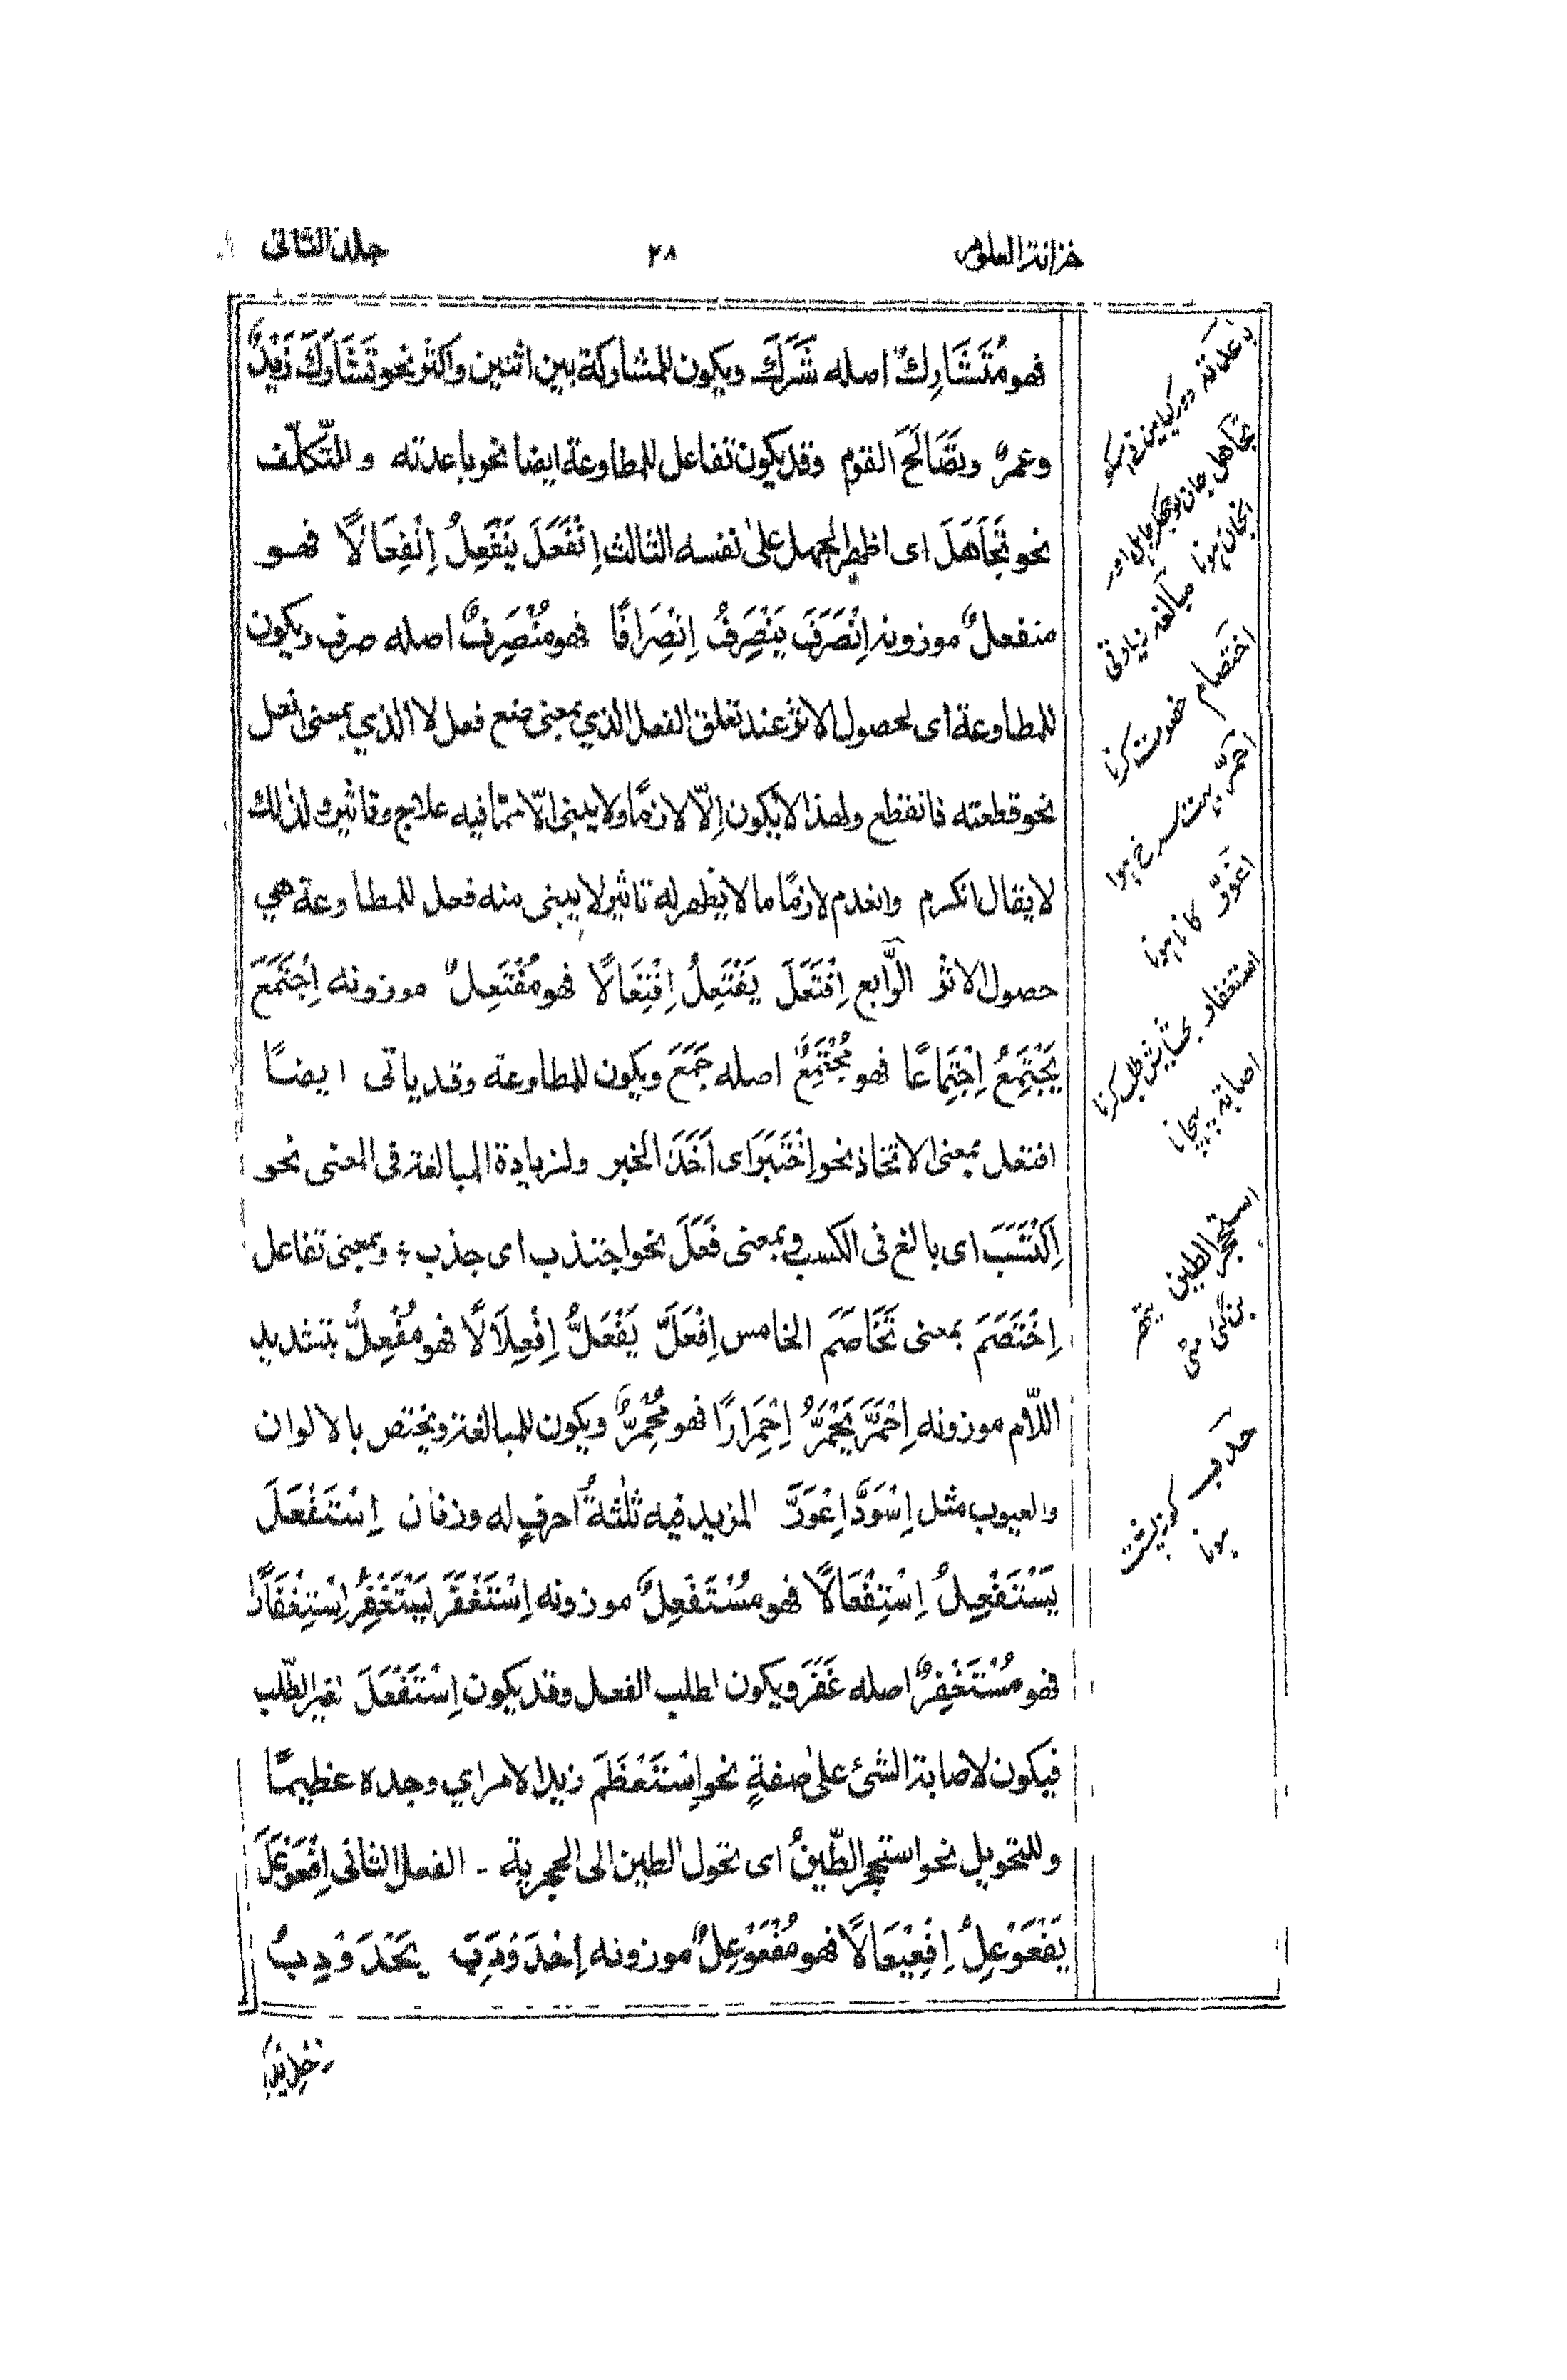 خزانة العلوم ٢٨ جلد الثانی
فهو مُتَشَارِكٌ اصله شَرَكَ ويكون للمشاركة بين اثنين واكثر نحو تَشَارَكَ زَيْدٌ
وعمرٌ وتَصَالَحَ القوم وقد يكون تفاعل للمطاوعة ايضا نحو باعدته وللتَّكلّف
نحو تَجَاهَلَ اى اظهر الجهل على نفسه الثالث اِنْفَعَلَ يَنْفَعِلُ اِنْفِعَالًا فهو
منفعلٌ موزونه اِنْصَرَفَ يَنْصَرِفُ اِنْصِرَافًا فهو مُنْصَرِفٌ اصله صرف ويكون
للمطاوعة اى لحصول الاثر عند تعلق الفعل الذي بمعنى صنع فعل لا الذي بمعنى انعل
نحو قطعته فانقطع ولهذا لا يكون اِلّا لازمًا ولا يبنى الّا ممّا فيه علاج وتاثير ولذلك
لا يقال انكرم وانعدم لازمًا ما لا يظهر له تاثير لا يبنى منه فعل للمطاوعة هي
حصول الاثر الرَّابع اِفْتَعَلَ يَفْتَعِلُ اِفْتِعَالًا فهو مُفْتَعِلٌ موزونه اِجْتَمَعَ
يَجْتَمِعُ اِجْتِمَاعًا فهو مُجْتَمِعٌ اصله جَمَعَ ويكون للمطاوعة وقد ياتى ايضًا
افتعل بمعنى الاتخاذ نحو اِخْتَبَرَ اى اَخَذَ الخبر ولزيادة المبالغة فى المعنى نحو
اِكْتَسَبَ اى بالغ فى الكسب وبمعنى فَعَلَ نحو اجتذب اى جذب ؛ وبمعنى تفاعل
اِخْتَصَمَ بمعنى تَخَاصَمَ الخامس اِفْعَلَّ يَفْعَلُّ اِفْعِلَالًا فهو مُفْعِلٌّ بتشديد
اللّام موزونه اِحْمَرَّ يَحْمَرُّ اِحْمِرَارًا فهو مُحْمِرٌّ ويكون للمبالغة ويختص بالالوان
والعيوب مثل اِسْوَدَّ اِعْوَرَّ المزيد فيه ثلٰثةُ احرفٍ له وزنان اِسْتَفْعَلَ
يَسْتَفْعِلُ اِسْتِفْعَالًا فهو مُسْتَفْعِلٌ موزونه اِسْتَغْفَرَ يَسْتَغْفِرُ اِسْتِغْفَارًا
فهو مُسْتَغْفِرٌ اصله غَفَرَ ويكون لطلب الفعل وقد يكون اِسْتَفْعَلَ لغير الطّلب
فيكون لاصابة الشئ على صفةٍ نحو اِسْتَعْظَمَ زيد الامر اي وجده عظيمًا
وللتحويل نحو استحجر الطّينُ اى تحول الطين الى الحجرية ۔ الفعل الثانى اِفْعَوْعَلَ
يَفْعَوْعِلُ اِفْعِيْعَالًا فهو مُفْعَوْعِلٌ موزونه اِحْدَوْدَبَ يَحْدَوْدِبُ
باعدته دور کیا میں نے اسکو
تجاهل جان بوجھکر جاہل اور
انجان ہونا مبالغه زیادتی
اختصام خصومت کرنا
احمرّ بہت سرخ ہوا
اعورّ کانا ہونا
استغفار بخشایش طلب کرنا
اصابة پہچانا
استحجر الطین پتھر
بن گئی مٹی
حدب کوز پشت
ہونا